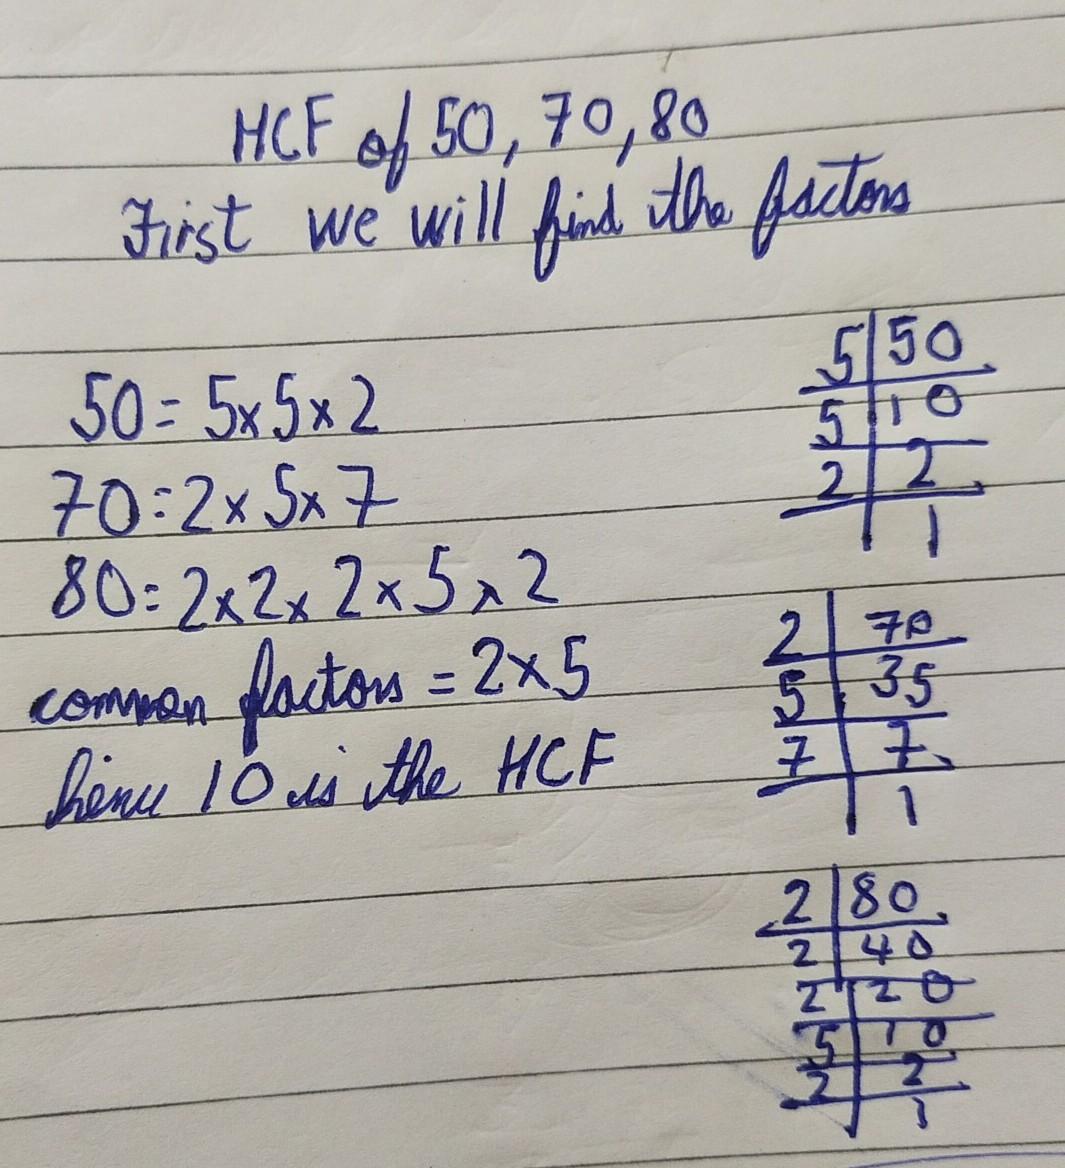 HCF of 50, 70, 80
First we will find the factors
50 = 5x5x2
70 = 2x5x7
80 = 2x2x2x5x2
common factors = 2x5
10 is the HCF
5|50
5|10
2|2
|1
2|70
5|35
7|7
|1
2|80
2|40
2|20
5|10
2|2
|1